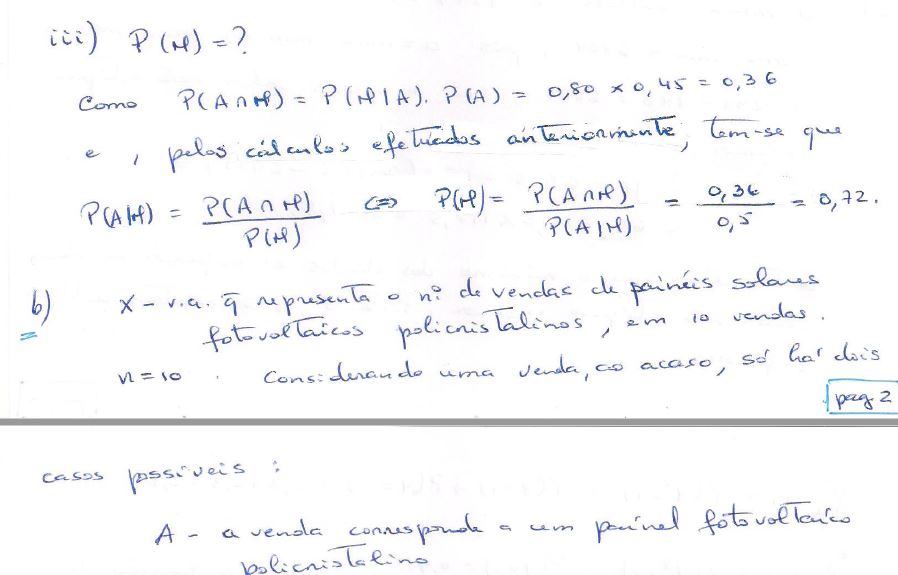 iii) P(M) = ?
Como P(A∩M) = P(M|A). P(A) = 0,80 × 0,45 = 0,36
e, pelos cálculos efetuados anteriormente, tem-se que
P(A|M) = P(A∩M)/P(M) ⇔ P(M) = P(A∩M)/P(A|M) = 0,36/0,5 = 0,72.
b) X - v.a. q̄ representa o nº de vendas de painéis solares
fotovoltaicos policristalinos, em 10 vendas.
n = 10. Considerando uma venda, ao acaso, só há dois
pag 2
casos possíveis :
A - a venda corresponde a um painel fotovoltaico
policristalino